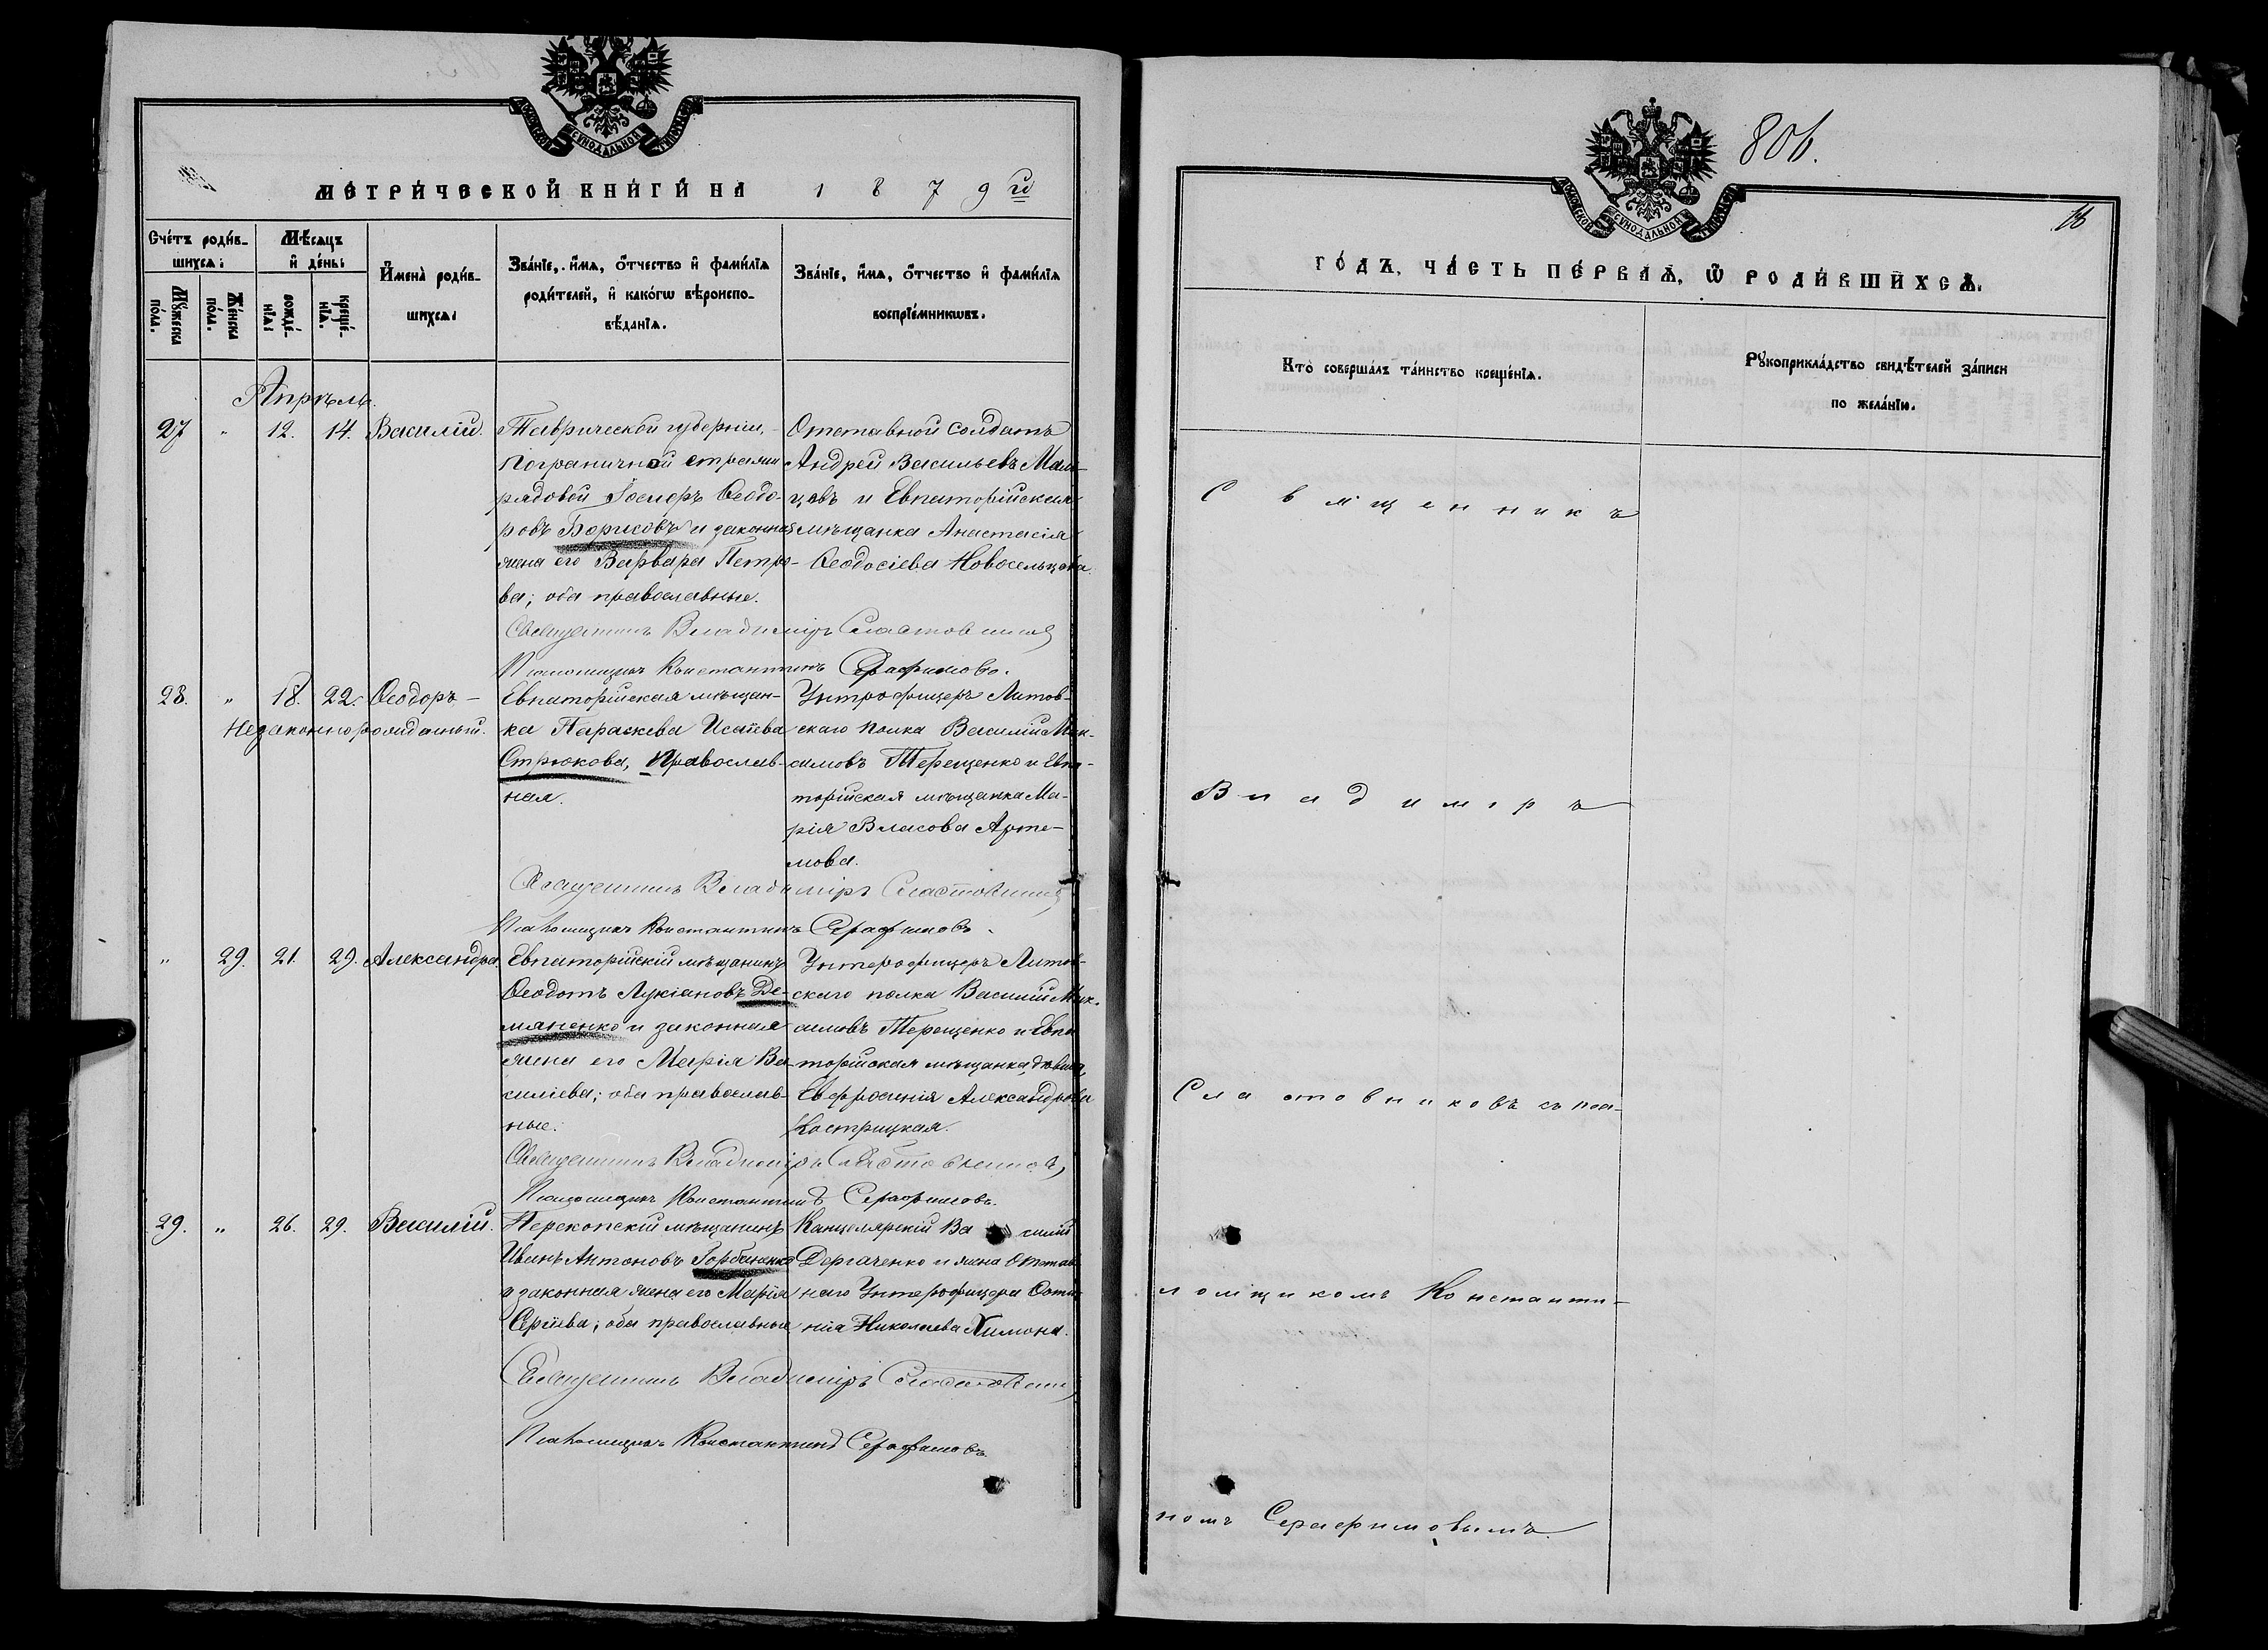 МОСКОВСКОЙ СѴНОДАЛЬНОЙ ТИПОГРАФІИ
МЕТРИ́ЧЕСКОЙ КНИ́ГИ НА 1879 го
Сче́тъ роди́вшихся:
Му́жеска по́ла.
Же́нска по́ла.
Мѣ́сяцъ и де́нь:
рожде́нія:
креще́нія.
Имена̀ роди́вшихся:
Зва́ніе, и́мя, о́тчество и фами́лія
роди́телей, и како́гѡ вѣроиспо-
вѣ́данія.
Зва́ніе, и́мя, о́тчество и фами́лія
воспріе́мникѡвъ.
Апрѣль.
27 " 12. 14. Василій.
Таврической губерніи,
пограничной стражи
рядовой Феодо-
ровъ Борисовъ и законная
жена его Варвара Петро-
ва; оба православные.
Отставной солдатъ
Андрей Васильевъ Маль-
цовъ и Евпаторійская
мѣщанка Анастасія
Ѳеодосіева Новосельцова.
Священникъ Владиміръ Сластовниковъ
Псаломщикъ Константинъ Серафимовъ.
28. " 18. 22. Ѳеодоръ –
Незаконнорожденный.
Евпаторійская мѣщан-
ка Параскева Исаіева
Стрюкова, Православ-
ная.
Унтрофицеръ Литов-
скаго полка Василій Мак-
симовъ Терещенко и Евпа-
торійская мѣщанка Ма-
рія Власова Арте-
мова.
Священникъ Владиміръ Сластовниковъ
Псаломщикъ Константинъ Серафимовъ.
" 29. 21. 29. Александра.
Евпаторійскій мѣщанинъ
Ѳеодотъ Лукіановъ Де-
мяненко и законная
жена его Марія Ва-
силіева; оба православ-
ные.
Унтерофицеръ Литов-
скаго полка Василій Мак-
симовъ Терещенко и Евпа
торійская мѣщанка, дѣвица,
Евфросинія Александрова
Кострицкая.
Священникъ Владиміръ Сластовниковъ
Псаломщикъ Константинъ Серафимовъ.
29. " 26. 29. Василій.
Перекопскій мѣщанинъ
Иванъ Антоновъ Горбаненко
и законная жена его Марія
Сергіева; оба православные
Канцелярскій Василій
Дергаченко и жена Отстав
наго Унтерофицера Фоти-
нія Николаева Химона.
Священникъ Владиміръ Сластовниковъ
Псаломщикъ Константинъ Серафимовъ.
806.
МОСКОВСКОЙ СѴНОДАЛЬНОЙ ТИПОГРАФІИ
ГО́ДЪ, ЧА́СТЬ ПЕ́РВАЯ, Ѡ РОДИ́ВШИХСЯ.
Кто̀ соверша́лъ та́инство креще́нія.
Рꙋкоприкла́дство свидѣ́телей за́писи
по жела́нію.
Священникъ
Владиміръ
Сластовниковъ съ пса-
ломщикомъ Константи-
номъ Серафимовымъ.